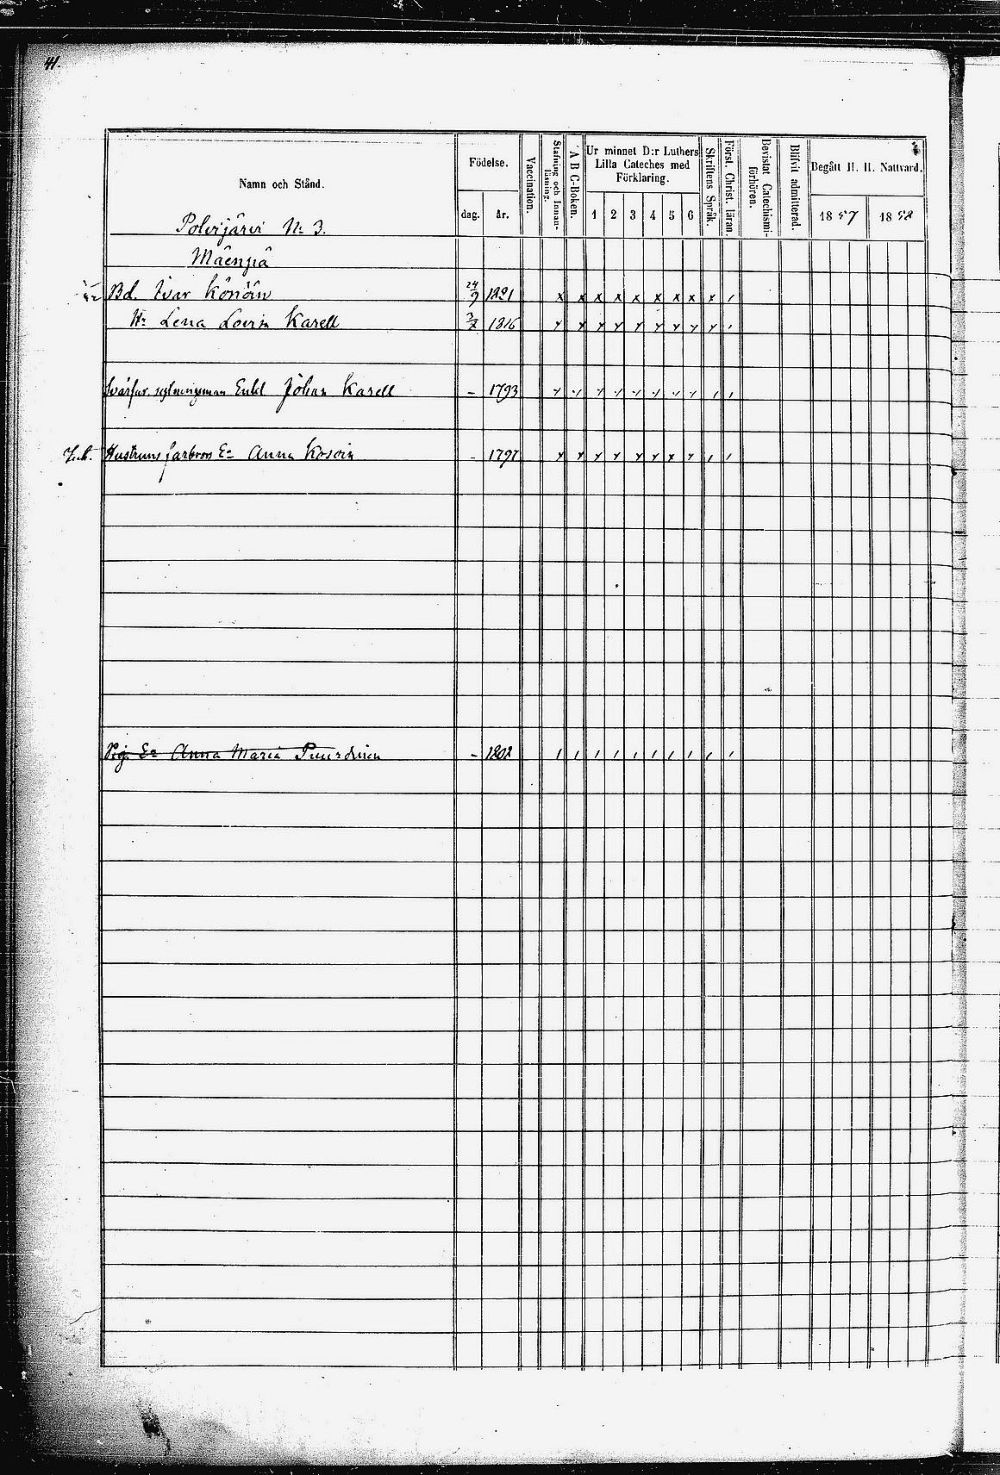 41.
Namn och Stånd.
Födelse.
dag. år.
Vaccination.
Stafning och Innan-läsning.
A B C-Boken.
Ur minnet D:r Luthers
Lilla Cateches med
Förklaring.
1 2 3 4 5 6
Skriftens Språk.
Först. Christ. läran
Bevistat Catechismi-förhören.
Blifvit admitterad.
Begått H. H. Nattvard.
1857 1858
Polvijärvi N: 3.
Mäenpä
Bd. Ivar Könöin 24/9 1821 x x x x x x x x x
Lena Lovisa Karell 1816
Johan Karell – 1793
Hustruns farbrors E:a Anna Kosoin - 1797
E:a Anna Maria – 1802